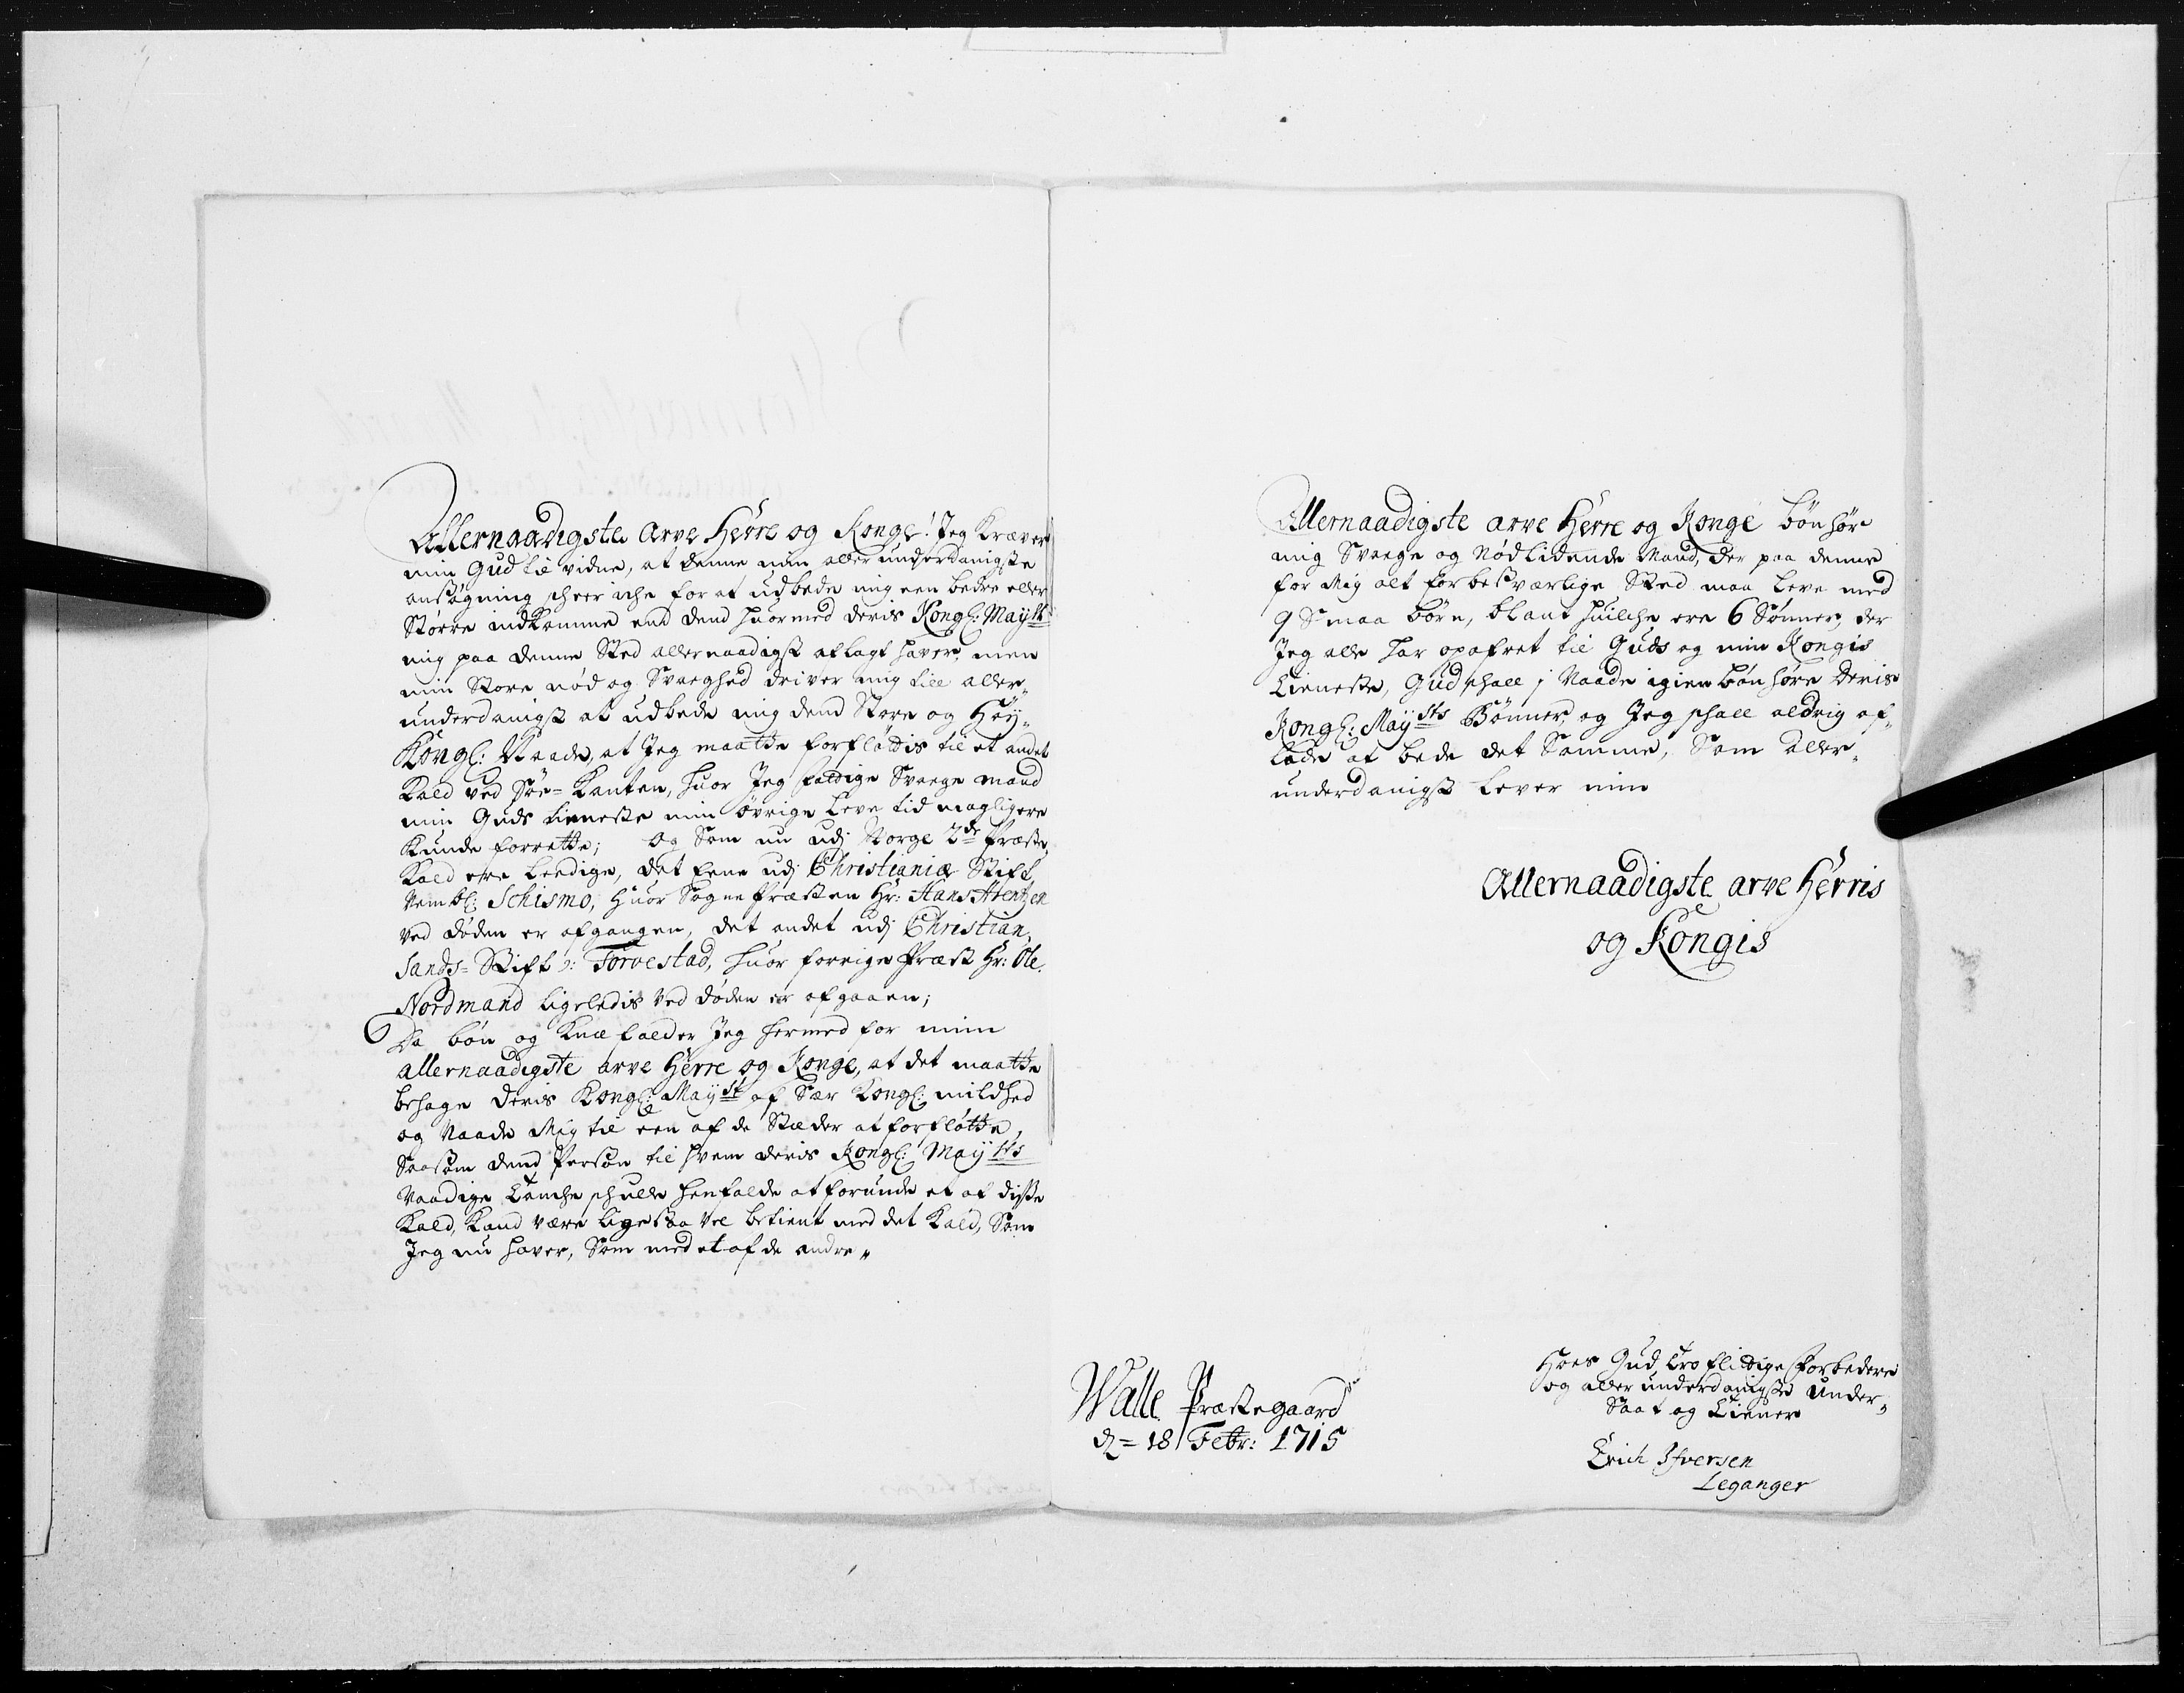 Allernaadigste Arve Herre og Konge! Jeg Kræver
min Gud til vidne, at denne min aller underdanigste
ansøgning scheer iche for at udbede mig een bedre eller
Større indkomme end dend huormed deris Kongl: Mayst
mig paa denne Sted allernaadigst aflagt haver, men
min Store nød og Svaeghed driver mig till aller„
underdanigst at udbede mig dend Store og Høy„
Kongl: Naade, at Jeg maatte forfløttis til et andet
Kald ved Søe= Kanten, huor Jeg fattige Svaege mand
min Guds tieneste min øvrige Leve tid magligere
Kunde forrette; Og Som nu udj Norge 2de Præste„
Kald ere Leedige, det Eene udj Christianiæ Stift
Nembl: Schismo, Huor Sogne Præsten Hr: Hans Arentzen
ved døden er afgangen, det andet udj Christian„
sands= Stift ɔ: Torvestad, huor forrige Præst Hr: Ole
Nordmand ligeledis ved døden er afgaaen;
Da bøn og Knæ falder Jeg hermed for min
allernaadigste arve Herre og Konge, at det maatte
behage deris Kongl: Mayst af Sær Kongl: mildhed
og Naade Mig til een af de Stæder at forfløtte,
Saasom dend Person til hvem deris Kongl: Maysts
Naadige Tanche schulle henfalde at forunde et af disse
Kald, Kand være ligesaa vel betient med det Kald, Som
Jeg nu haver, Som med et af de andre„
Allernaadigste arve Herre og Konge bønhør
mig Svaege og Nødlidende Mand, der paa denne
for Mig alt for besværlige Sted maa Leve med
9 Smaa børn, blant huilche ere 6 Sønner, der
Jeg alle har opofret til Guds og min Kongis
Tieneste, Gud schall j Naade igien bønhøre Deris
Kongl: Maysts Bønner, og Jeg schall aldrig af„
lade at bede det Samme, Som aller„
underdanigst Lever min
Allernaadigste arve Herris
og Kongis
Walle Præstegaard
d= 18 Febr: 1715
Hoes Gud tro flittige forbedere
og aller underdanigste Under„
Saat og Tiener
Erich Ifversen
Leganger